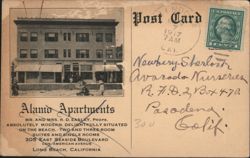 Post Card
1917
7 AM
CAL.
Alamo Apartments
MR. AND MRS. H. D. EASLEY, Props.
ABSOLUTELY MODERN, DELIGHTFULLY SITUATED
ON THE BEACH. TWO AND THREE ROOM
SUITES AND SINGLE ROOMS
305 EAST SEASIDE BOULEVARD
LONG BEACH, CALIFORNIA
Newbery Sherlock
Avocado Nurseries
R.F.D. 2, Box 427a
Pasadena
Calif